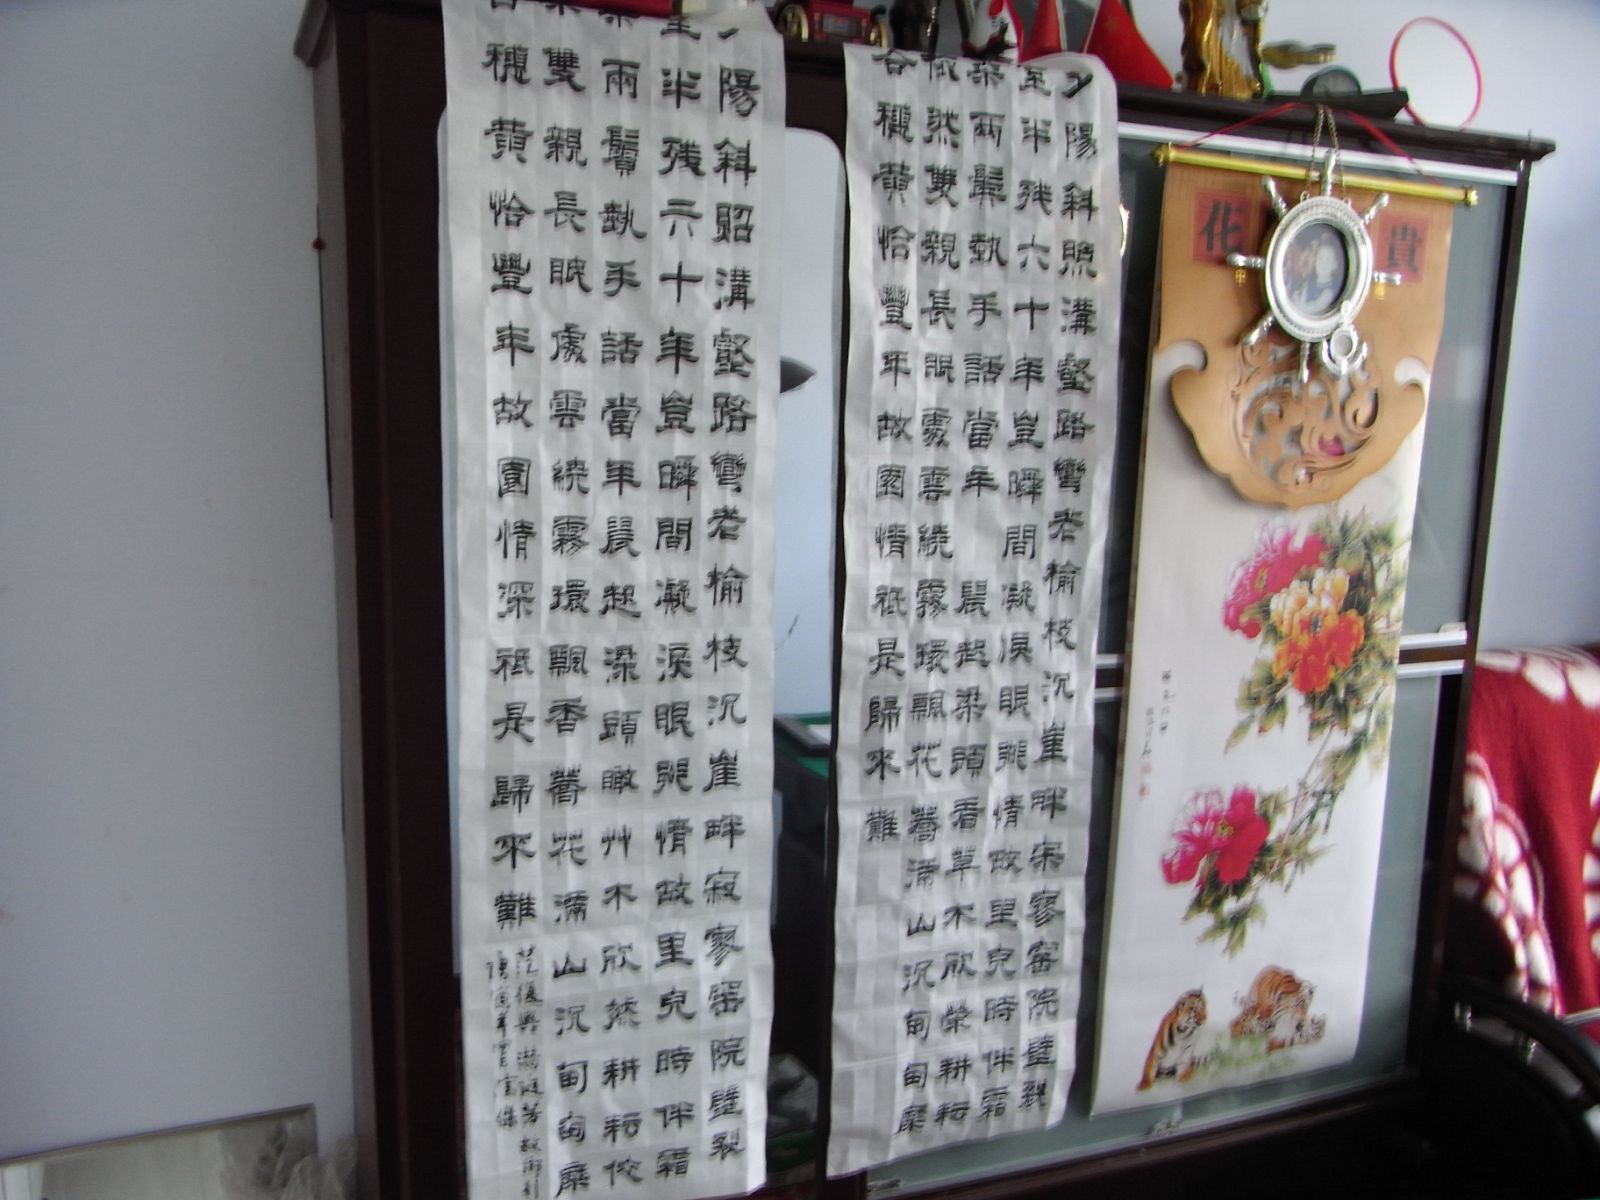 夕陽斜照溝壑路彎老榆枝沉崖畔寂寥窑院壁裂
半残六十年豈瞬間凝淚眼別情故里兒時伴霜
染兩鬢執手話當年晨起梁頭瞰艸木欣然耕耘依
雙親長眠處雲繞霧環飄香蕎花滿山沉甸甸糜
谷穗黄恰豐年故園情深祗是歸來難
滿庭芳故鄉行
庚寅年
夕陽斜照溝壑路彎老榆枝沉崖畔寂寥窑院壁裂
半残六十年豈瞬間凝淚眼別情故里兒時伴霜
染兩鬢執手話當年晨起梁頭看草木欣榮耕耘
依然雙親長眠處雲繞霧環飄花蕎滿山沉甸甸糜
谷穗黄恰豐年故園情祗是歸來難
花
貴